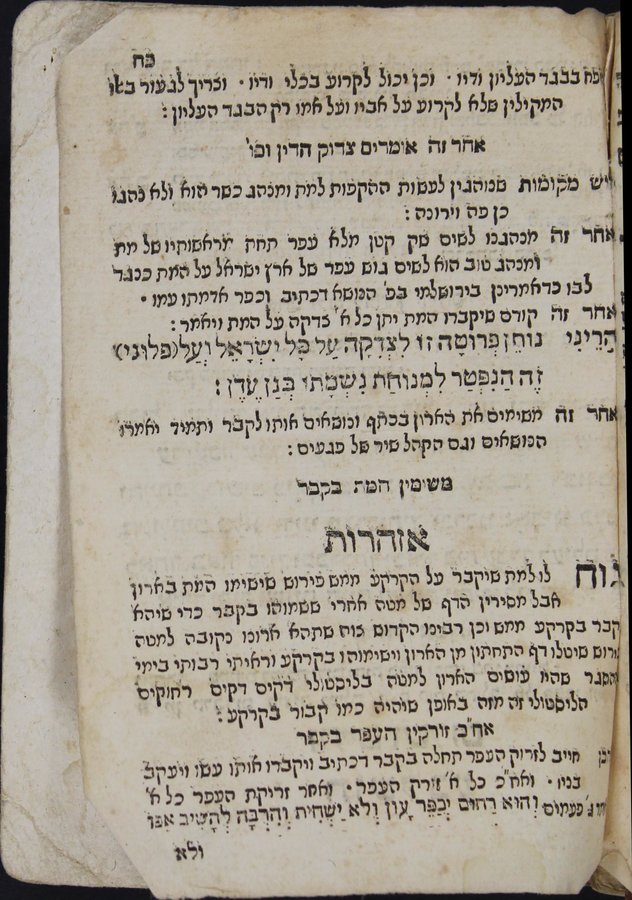 כח
בבגד העליון ודיו · וכן יכול לקרוע בכלי ודיו · וצריך לגעור באו
המקילין שלא לקרוע על אביו ועל אמו רק הבגד העליון :
אחר זה אומרים צדוק הדין וכו'
ויש מקומות שנוהגין לעשות ההקפות למת ומנהג כשר הוא ולא נהגו
כן פה וירונה :
אחר זה מנהגנו לשים שק קטן מלא עפר תחת מראשותיו של מת
ומנהג טוב הוא לשים גוש עפר של ארץ ישראל על המת כנגד
לבו כדאמרינן בירושלמי בפ' הנושא דכתיב וכפר אדמתו עמו ·
אחר זה קודם שיקברו המת יתן כל א' צדקה על המת ויאמר :
הֲרֵינִי נוֹתֵן פְּרוּטָה זוֹ לִצְדָקָה עַל כָּל יִשְׂרָאֵל וְעַל (פלוני)
זֶה הַנִּפְטָר לִמְנוּחַת נִשְׁמָתוֹ בְּגַן עֵדֶן :
אחר זה משימים את הארון בכתף ונושאים אותו לקבר ותמיד יאמרו
הנושאים וגם הקהל שיר של פגעים :
משימין המת בקבר
אזהרות
נוח לו למת שיקבר על הקרקע ממש פירוש שישימו המת בארון
אבל מסירין הדף של מטה אחרי ששמוהו בקבר כדי שיהא
קבר בקרקע ממש וכן רבינו הקדוש צוה שתהא ארונו נקובה למטה
פירוש שיטלו דף התחתון מן הארון וישימוהו בקרקע וראיתי רבותי בימי
שהיו עושים הארון למטה בליסטולי דקים דקים רחוקים
הליסטולי זה מזה באופן שיהיה כמו קבור בקרקע :
אח"כ זורקין העפר בקבר
חייב לזרוק העפר תחלה בקבר דכתיב ויקברו אותו עשו ויעקב
בניו · ואח"כ כל א' זורק העפר · ואחר זריקת העפר כל א'
ג' פעמים וְהוּא רַחוּם יְכַפֵּר עָוֹן וְלֹא יַשְׁחִית וְהִרְבָּה לְהָשִׁיב אַפּוֹ
ולא